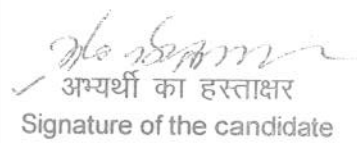 अभ्यर्थी का हस्ताक्षर
Signature of the candidate